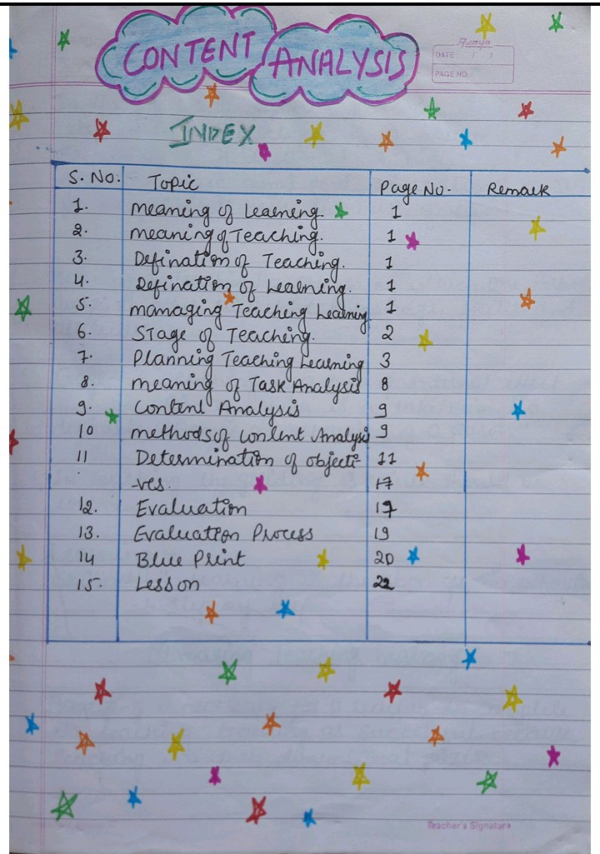 CONTENT ANALYSIS
DATE / /
PAGE NO.
INDEX
S. No. Topic Page No. Remark
1. meaning of Learning. 1
2. meaning of Teaching. 1
3. Defination of Teaching. 1
4. Defination of Learning. 1
5. managing Teaching Learning 1
6. Stage of Teaching. 2
7. Planning Teaching Learning 3
8. meaning of Task Analysis 8
9. Content Analysis 9
10 methods of content Analysis 9
11 Determination of objecti- 11
-ves. 17
12. Evaluation 17
13. Evaluation Process 19
14 Blue Print 20
15. Lesson 22
Teacher's Signature